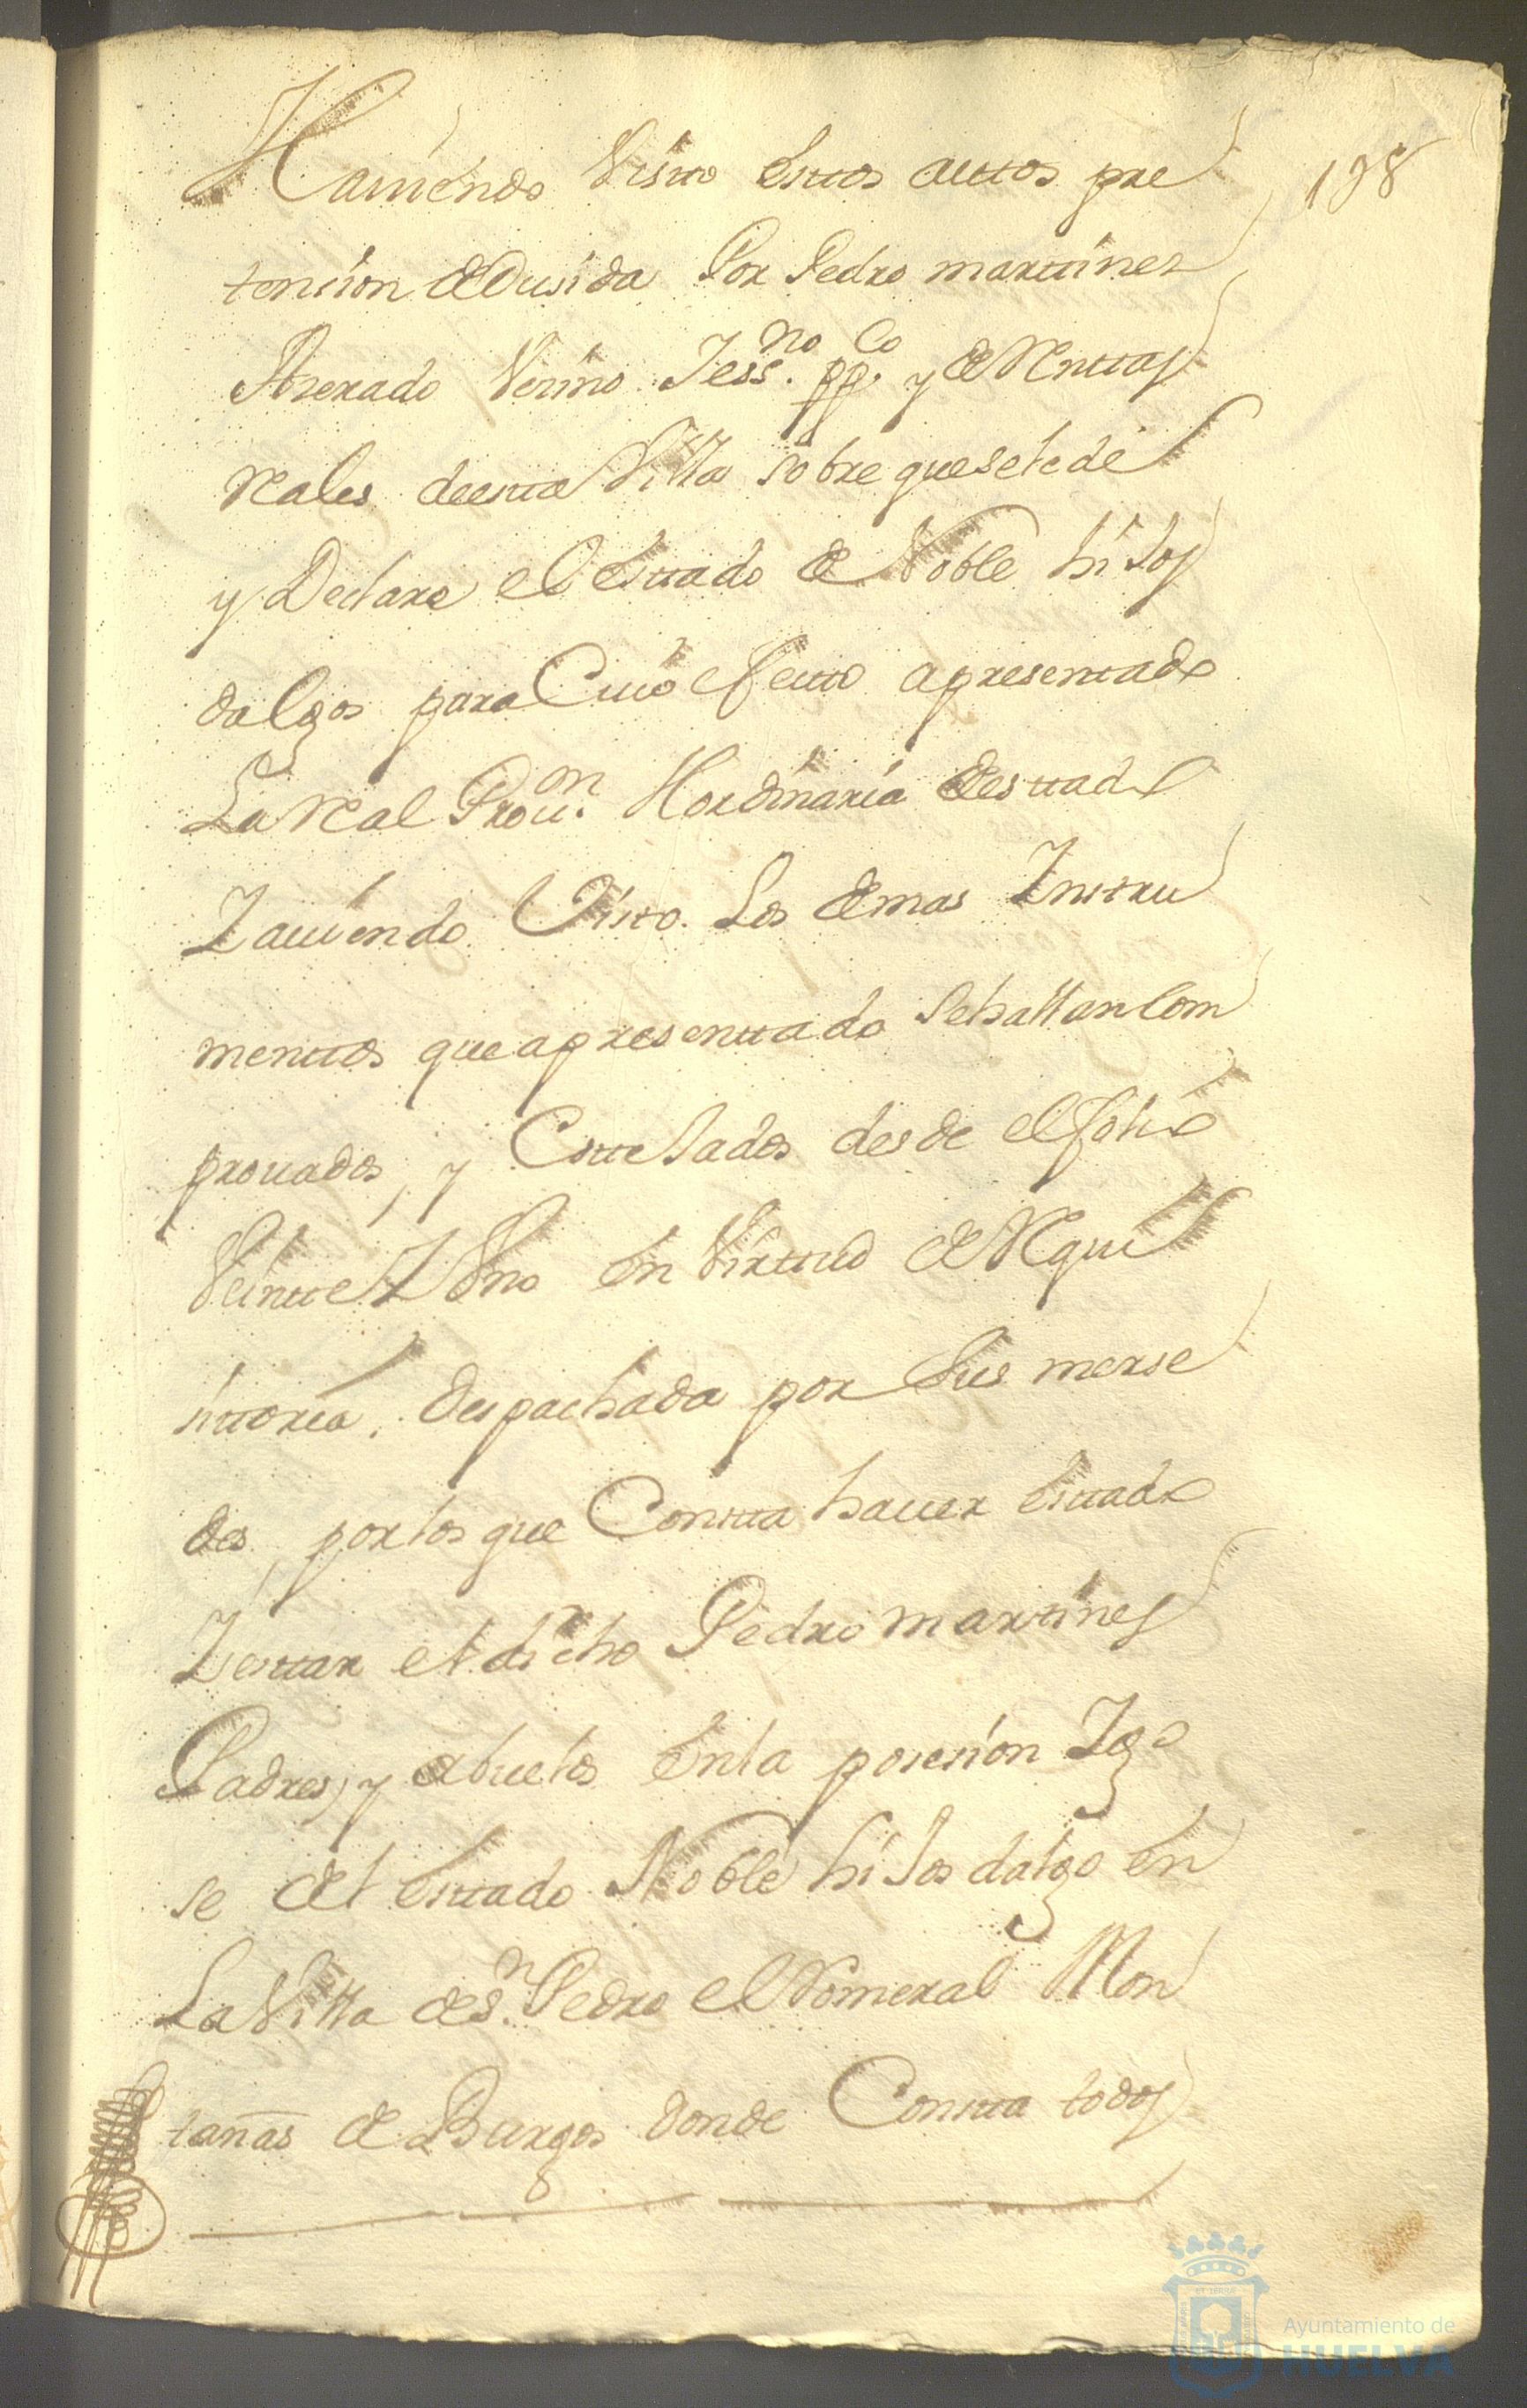 Hauiendo Visto estos auttos pre
198
tencion deDusida Por Pedro marttines
Verino Iess.no pp.co y de Renttas
reales deesta Villa sobre queselede
y Declare el esttado de Noble hiJos
dalgos para Cuio efectto apresentado
La real Prou.on Hordinaria de esttado
Zauiendo Visto. Los demas Instru
menttos que apresenttado Sehallan Com
prouados, y Cottejados desde el folio
Veintte Y Vno en Virttud de Requi
sittoria, despachada por Sus merse
des, porlos que Constta hauer esttado
Y esttar el dicho Pedro marttines
Padres, y abuelos enla posesion Y go
se del esttado Noble hiJos dalgo en
La Villa de S.n Pedro el Romeral Mon
tañas de Burgos donde Constta todos
Ayuntamiento de
HUELVA